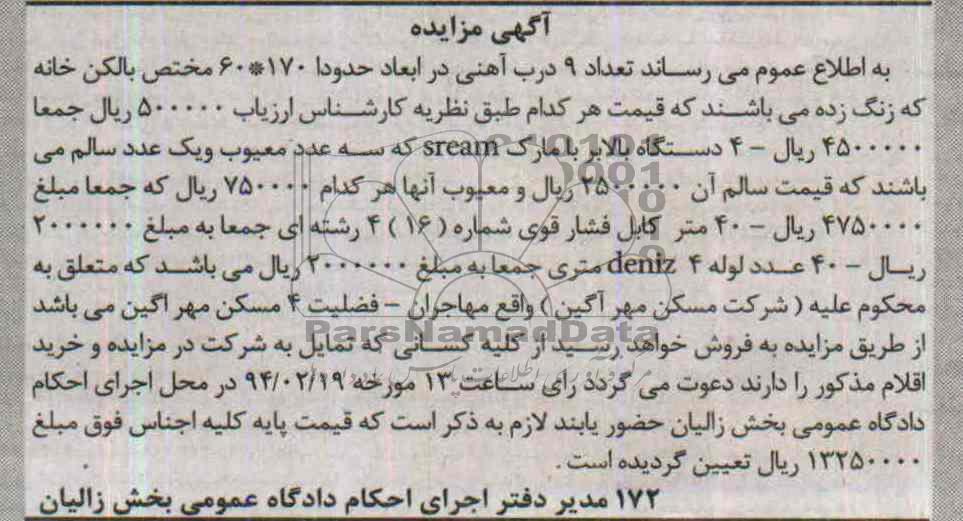 آگهی مزایده
به اطلاع عموم می رساند تعداد ۹ درب آهنی در ابعاد حدودا ۱۷۰*۶۰ مختص بالکن خانه
که زنگ زده می باشند که قیمت هر کدام طبق نظریه کارشناس ارزیاب ۵۰۰۰۰۰ ریال جمعا
۴۵۰۰۰۰۰ ریال – ۴ دستگاه بالابر با مارک sream که سه عدد معیوب ویک عدد سالم می
باشند که قیمت سالم آن ۲۵۰۰۰۰۰ ریال و معیوب آنها هر کدام ۷۵۰۰۰۰ ریال که جمعا مبلغ
۴۷۵۰۰۰۰ ریال – ۴۰ متر کابل فشار قوی شماره ( ۱۶ ) ۴ رشته ای جمعا به مبلغ ۲۰۰۰۰۰۰
ریال – ۴۰ عدد لوله ۴ deniz متری جمعا به مبلغ ۲۰۰۰۰۰۰ ریال می باشد که متعلق به
محکوم علیه ( شرکت مسکن مهر آگین ) واقع مهاجران – فضلیت ۴ مسکن مهر اگین می باشد
ParsNamadData
از طریق مزایده به فروش خواهد رسید از کلیه کسانی که تمایل به شرکت در مزایده و خرید
اقلام مذکور را دارند دعوت می گردد رای ساعت ۱۳ مورخه ۹۴/۰۲/۱۹ در محل اجرای احکام
دادگاه عمومی بخش زالیان حضور یابند لازم به ذکر است که قیمت پایه کلیه اجناس فوق مبلغ
۱۳۲۵۰۰۰۰ ریال تعیین گردیده است .
۱۷۲ مدیر دفتر اجرای احکام دادگاه عمومی بخش زالیان